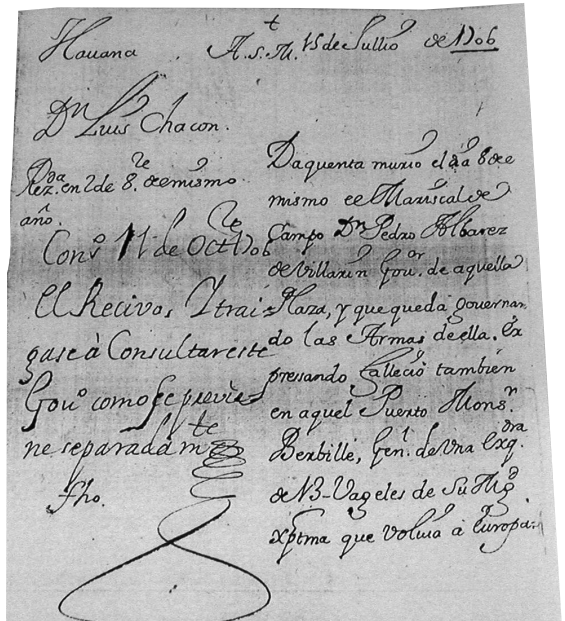 Hauana A. s. M.t 15 de Jullio de 1706
Dn Luis Chacon.
Rda
Rez. en 2 de 8.re de mismo
año.
Conso 11 de Octre 1706
El Recivo, Y trai-
gase à Consultar este
Gouo como se previe-
ne separadamte
fho.
Da quenta murio el dia 8 de
mismo el Mariscal de
Campo Dn Pedro Albarez
de Villarin Gour. de aquella
Plaza, y que queda gouernan-
do las Armas de ella. Ex
presando fallecio tambien
en aquel Puerto Monsr.
Berbille, Genl. de vna Exqdra.
de 13 Vageles de Su Mgd
xptma que Voluia à Europa.